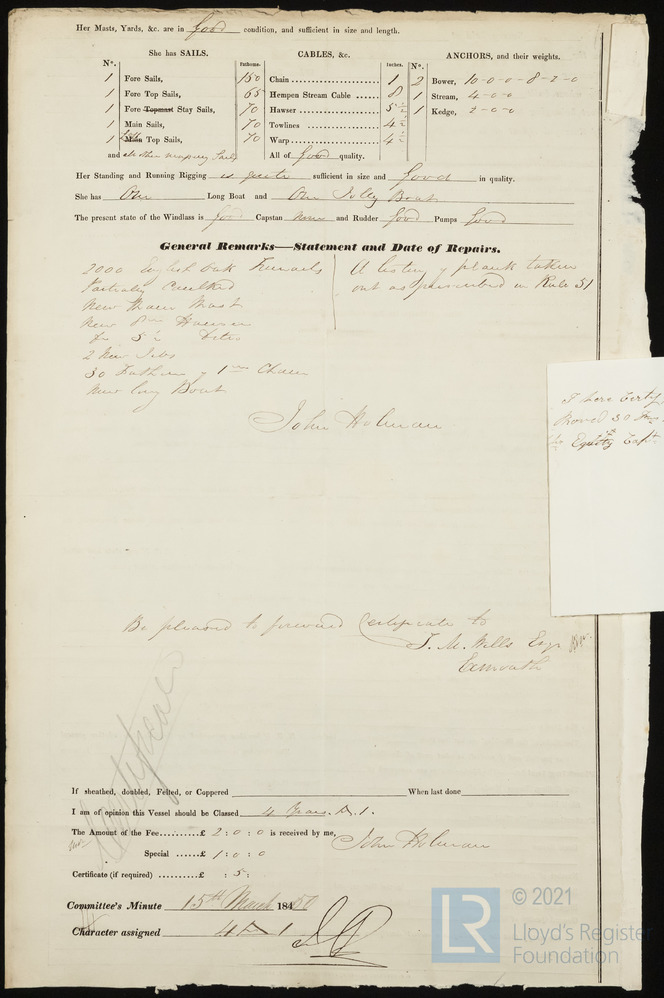 Her Masts, Yards, &c. are in good condition, and sufficient in size and length.
She has SAILS. CABLES, &c. ANCHORS, and their weights.
N°. Fathoms. Inches. N°.
1 Fore Sails, 150 Chain 1 2 Bower, 10-0-0-8-2-0
1 Fore Top Sails, 65 Hempen Stream Cable 8 1 Stream, 4-0-0
1 Fore Topmast Stay Sails, 70 Hawser 5 1 Kedge, 2-0-0
1 Main Sails, 70 Towlines 4
1 Main Top Sails, 70 Warp 4
and all other necessary Sails All of good quality.
Her Standing and Running Rigging is quite sufficient in size and good in quality.
She has One Long Boat and One Jolly Boat
The present state of the Windlass is good Capstan None and Rudder good Pumps good
General Remarks—Statement and Date of Repairs.
2000 English Oak Trenails
Partially Caulked
New Main Mast
New Hawser
5 Ditto
2 New Jibs
30 Fathom of 1 Chain
New long Boat
A listing of plank taken
out as prescribed in Rule 51
John Holman
I here Certify
Proved 30
Equity Capt
Be pleased to forward Certificate to
J. M. Wills Esqr
Exmouth
If sheathed, doubled, Felted, or Coppered When last done
I am of opinion this Vessel should be Classed 4 Years. A. 1.
The Amount of the Fee £ 2 : 0 : 0 is received by me, John Holman
Special £ 1 : 0 : 0
Certificate (if required) £ : 5 :
Committee's Minute 15th March 1850
Character assigned 4 A 1
LR
© 2021
Lloyd's Register
Foundation